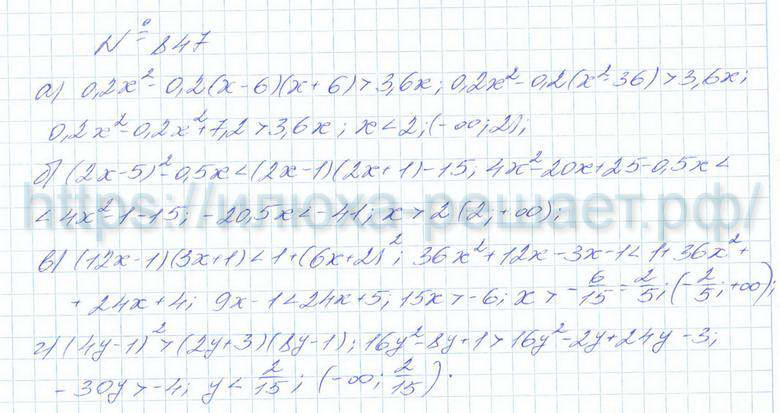 № 847
а) 0,2x² - 0,2(x-6)(x+6) > 3,6x; 0,2x² - 0,2(x²-36) > 3,6x;
0,2x² - 0,2x² + 7,2 > 3,6x; x < 2; (-∞; 2);
б) (2x-5)² - 0,5x < (2x-1)(2x+1) - 15; 4x² - 20x + 25 - 0,5x <
< 4x² - 1 - 15; -20,5x < -41; x > 2 (2; +∞);
https://илюха-решает.рф/
в) (12x-1)(3x+1) < 1 + (6x+2)²; 36x² + 12x - 3x - 1 < 1 + 36x² +
+ 24x + 4; 9x - 1 < 24x + 5; 15x > -6; x > -6/15 = 2/5; (-2/5; +∞);
г) (4y-1)² > (2y+3)(8y-1); 16y² - 8y + 1 > 16y² - 2y + 24y - 3;
-30y > -4; y < 2/15; (-∞; 2/15).